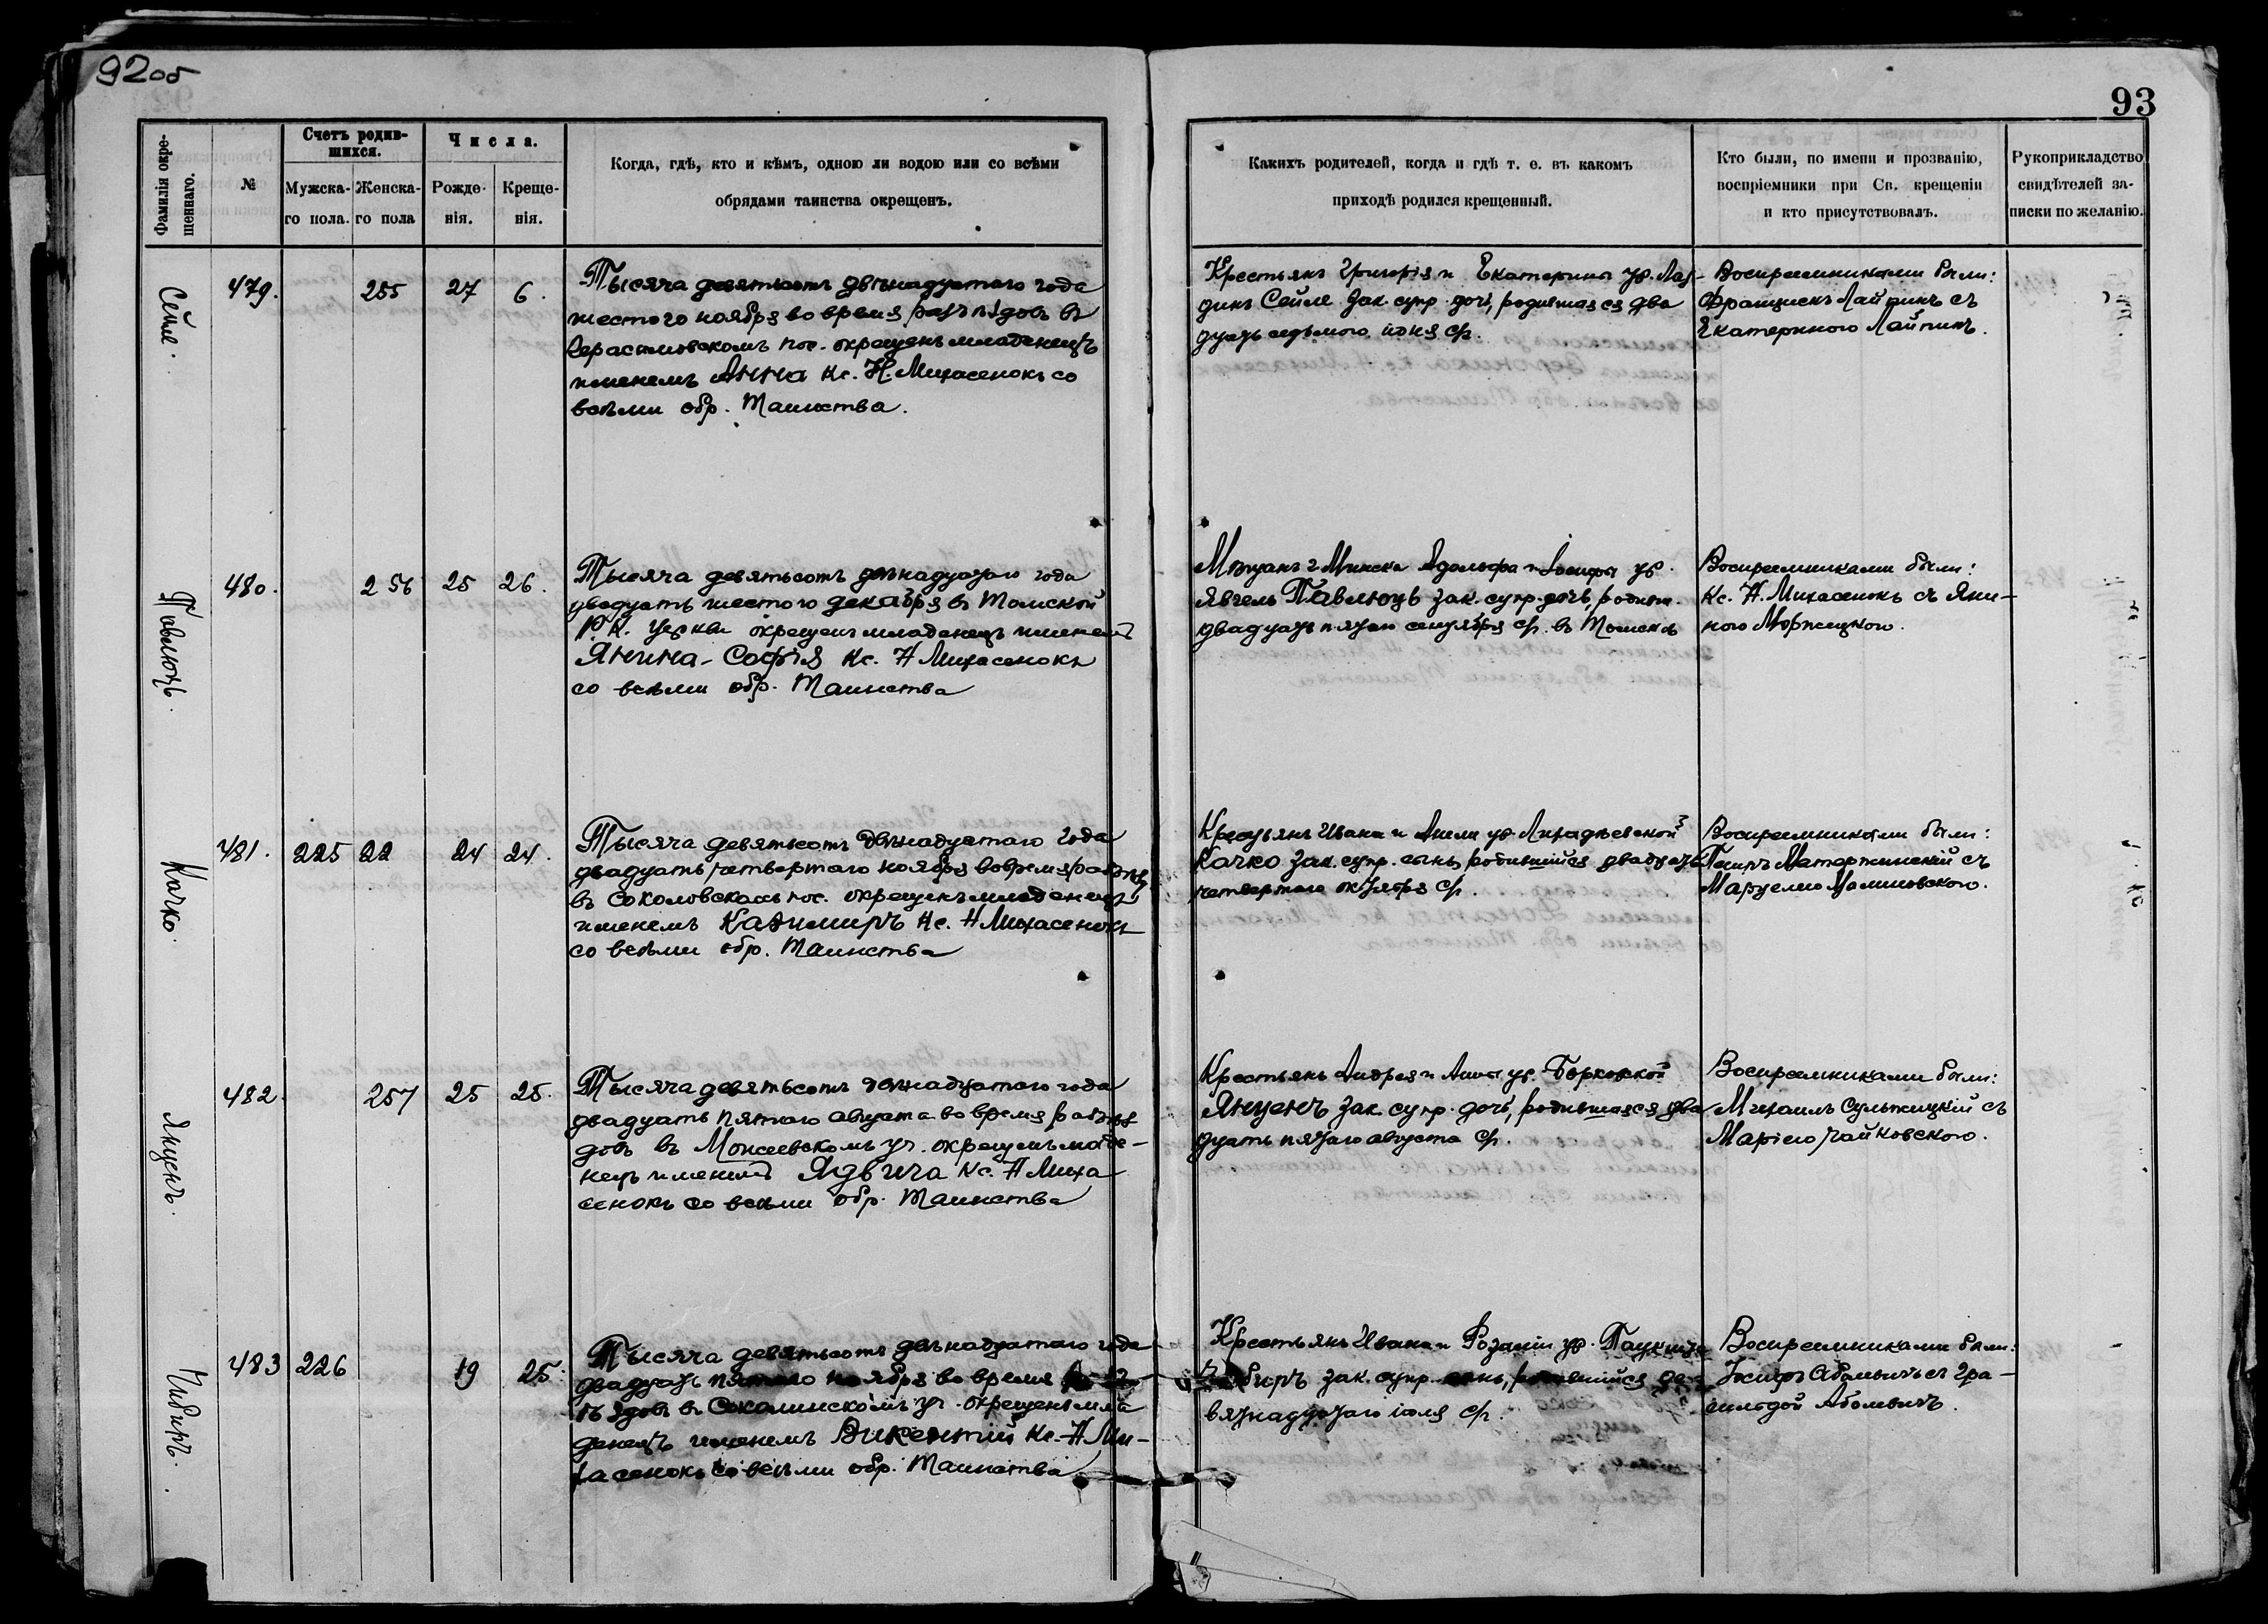 92об
93
Фамилія окре-
щеннаго.
№
Счетъ родив-
шихся.
Мужска-
го пола.
Женска-
го пола
Числа.
Рожде-
нія.
Креще-
нія.
Когда, гдѣ, кто и кѣмъ, одною ли водою или со всѣми
обрядами таинства окрещенъ.
Какихъ родителей, когда и гдѣ т. е. въ какомъ
приходѣ родился крещенный.
Кто были, по имени и прозванію,
воспріемники при Св. крещеніи
и кто присутствовалъ.
Рукоприкладство
свидѣтелей за-
писки по желанію.
Сейле.
479. 255 27 6.
Тысяча девятьсотъ двѣнадцатого года
шестого ноября во время разъѣздовъ въ
пос. окрещенъ младенецъ
именемъ Анна Кс. Н. Михасенокъ со
всѣми обр. Таинства.
Крестьянъ Григорія и Екатерины ур.
Сейле зак. супр. дочь, родившаяся два
дцать седьмого іюня с/г.
Воспреемниками были:
Францискъ съ
Екатериною
Павлюць.
480. 256 25 26.
Тысяча девятьсотъ двѣнадцатаго года
двадцать шестого декабря въ Томской
Р. К. Церкви окрещенъ младенецъ именемъ
Янина-Софія Кс. Н Михасенокъ
со всѣми обр. Таинства
Мѣщанъ г Минска Адольфа и Іосифы ур.
Павлюць зак. супр. дочь, родивш.
двадцать пятаго сентября с/г. въ Томскѣ
Воспреемниками были:
Кс. Н. Михасенокъ съ Яни-
ною
Качко.
481. 225 22 24 24.
Тысяча девятьсотъ двѣнадцатаго года
двадцать четвертаго ноября во время
въ Соколовскомъ пос. окрещенъ младенецъ
именемъ Казимиръ Кс. Н Михасенокъ
со всѣми обр. Таинства
Крестьянъ Ивана и ур.
Качко зак. супр. сынъ, родившийся двадцать
четвертаго октября с/г.
Воспреемниками были:
съ
Марцелею Малиновского.
Янценъ.
482. 257 25 25.
Тысяча девятьсотъ двѣнадцатаго года
двадцать пятаго августа во время
довъ въ Моисеевскомъ уч. окрещенъ младе-
нецъ именемъ Ядвига Кс. Н Миха
сенокъ со всѣми обр. Таинства
Крестьянъ Андрея и Анны ур. Борковской
Янценъ зак. супр. дочь, родившаяся два
дцать пятаго августа с/г.
Воспреемниками были:
Михаилъ Сульжицкій съ
Маріею Чайковского.
Чибиръ.
483 226 19 25.
Тысяча девятьсотъ двѣнадцатаго года
двадцать пятаго ноября во время
ѣздовъ въ уч. окрещенъ мла
денецъ именемъ Викентій Кс. Н Ми-
хасенокъ со всѣми обр. Таинства
Крестьянъ Ивана и Розаліи ур.
Чибиръ зак. супр. сынъ, родившийся де-
вятнадцатаго іюля с/г.
Воспреемниками были:
Іосифъ съ